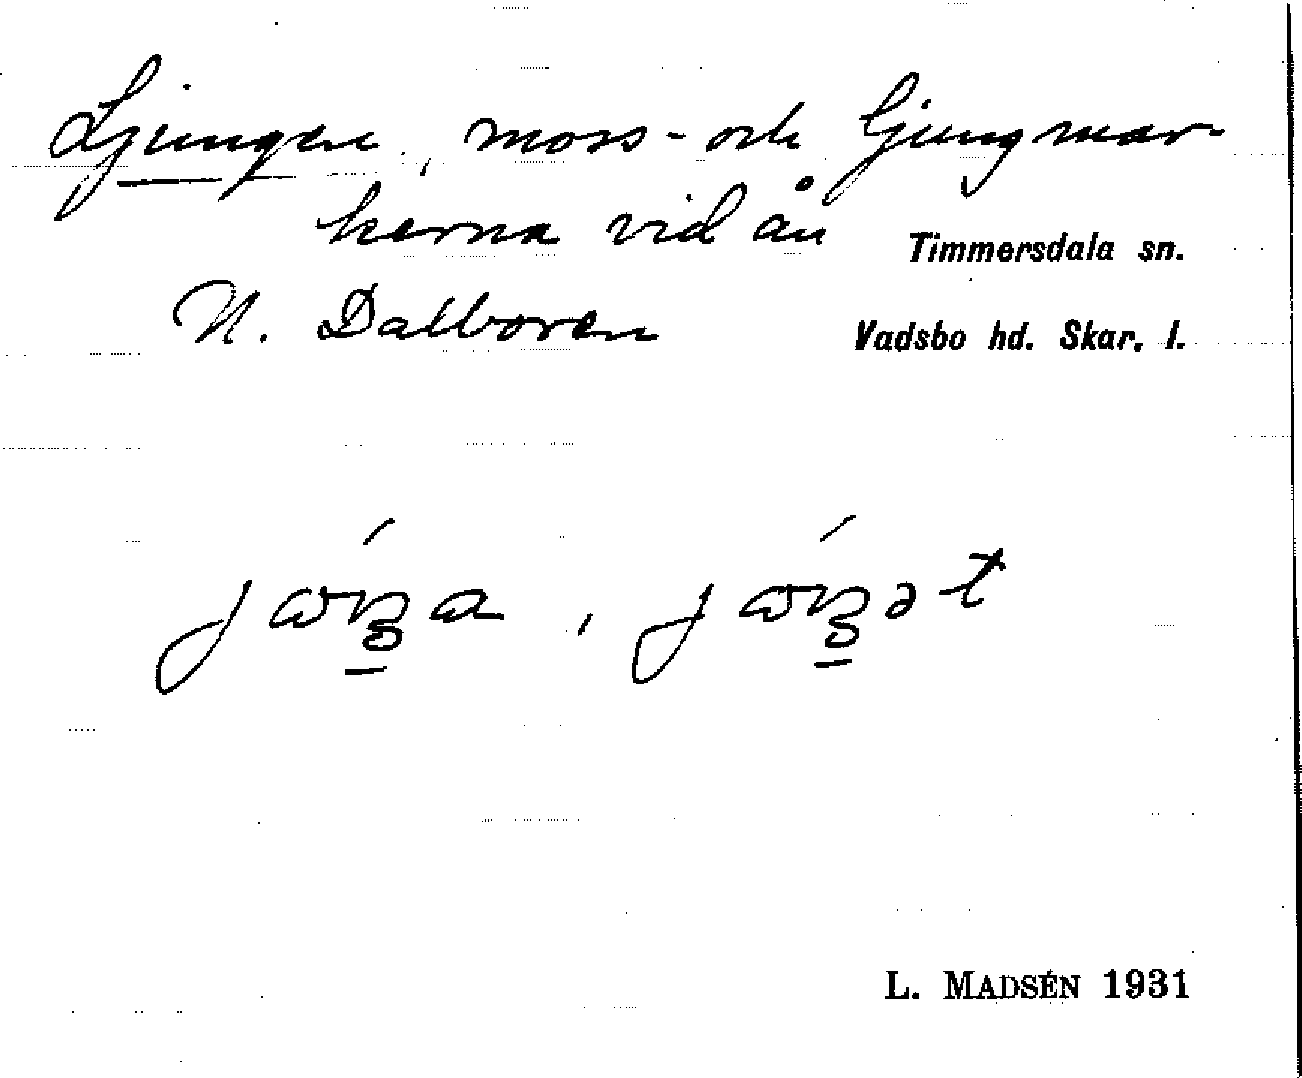 Ljungen, moss- och ljungmar-
kerna vid ån
Timmersdala sn.
N. Dalboren
Vadsbo hd. Skar. l.
L. MADSÉN 1931